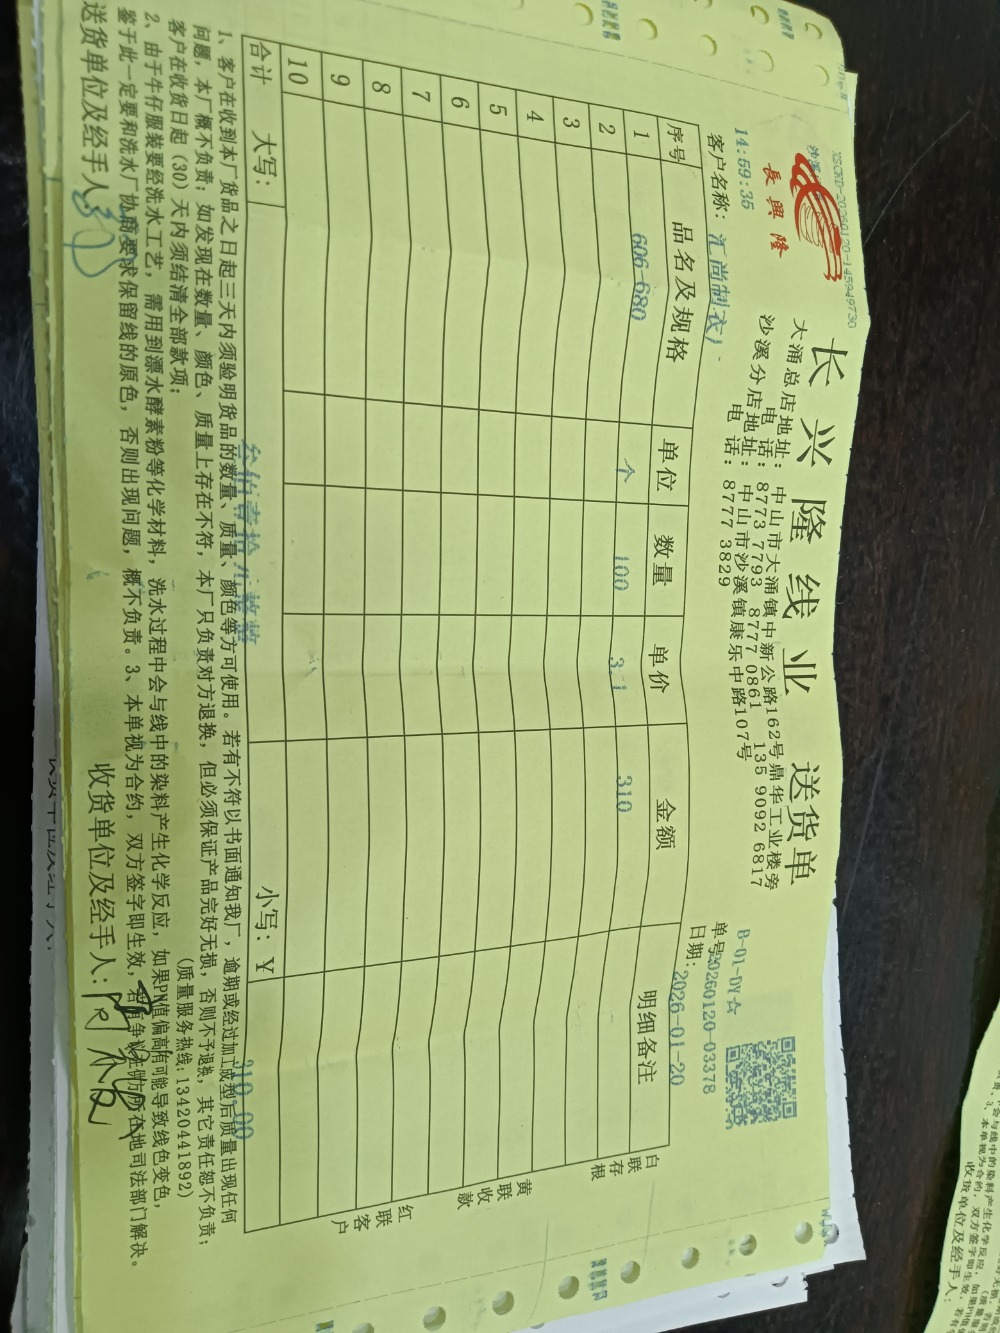 XSCKD-20260120-145949730
長興隆
长兴隆线业 送货单
大涌总店地址：中山市大涌镇中新公路162号鼎华工业楼旁
电 话：8773 7793 8777 0861 135 9092 6817
沙溪分店地址：中山市沙溪镇康乐中路107号
电 话：8777 3829
B-01-DY☆
14:59:35
单号:20260120-03378
客户名称：汇尚制衣厂
日期：2026-01-20
序号 品名及规格 单位 数量 单价 金额 明细备注
1 606-680 个 100 3.1 310
2
3
4
5
6
7
8
9
10
合计 大写：叁佰壹拾元整 小写：￥ 310.00
白联存根
黄联收款
红联客户
1、客户在收到本厂货品之日起三天内须验明货品的数量、质量、颜色等方可使用。若有不符以书面通知我厂，逾期或经过加工成型后质量出现任何
问题，本厂概不负责；如发现在数量、颜色、质量上存在不符，本厂只负责对方退换，但必须保证产品完好无损，否则不予退换，其它责任恕不负责；
客户在收货日起（30）天内须结清全部款项； （质量服务热线：13420441892）
2、由于牛仔服装要经洗水工艺，需用到漂水酵素粉等化学材料，洗水过程中会与线中的染料产生化学反应，如果PH值偏高有可能导致线色变色，
鉴于此一定要和洗水厂协商要求保留线的原色，否则出现问题，概不负责。3、本单视为合约，双方签字即生效，若有争议在供方所在地司法部门解决。
送货单位及经手人： 收货单位及经手人：